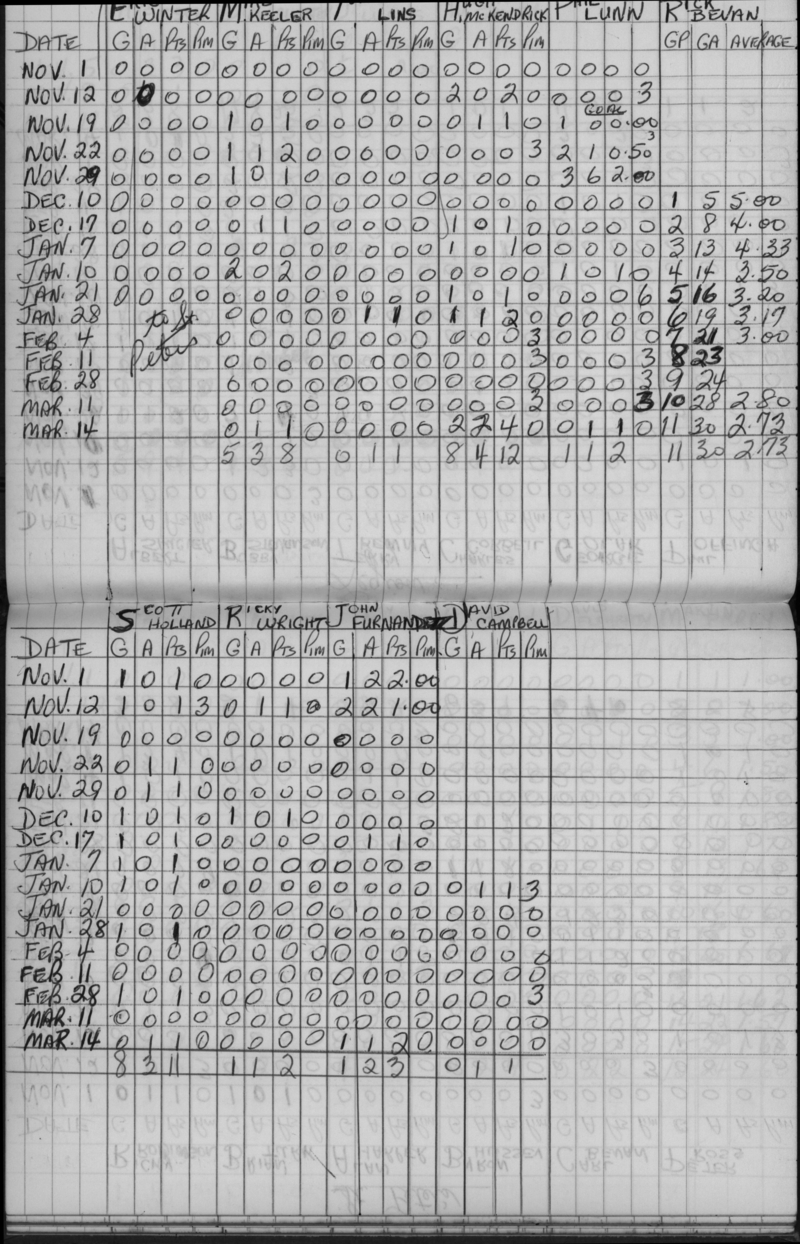 WINTER KEELER LINS HUGH McKENDRICK PHIL LUNN RICK BEVAN
DATE G A Pts Pim G A Pts Pim G A Pts Pim G A Pts Pim GP GA AVERAGE
NOV. 1 0 0 0 0 0 0 0 0 0 0 0 0 0 0 0 0 0 0 0 0
NOV. 12 0 0 0 0 0 0 0 0 0 0 0 0 2 0 2 0 0 0 0 3
GOAL
NOV. 19 0 0 0 0 1 0 1 0 0 0 0 0 0 1 1 0 1 0 0.00
NOV. 22 0 0 0 0 1 1 2 0 0 0 0 0 0 0 0 3 2 1 0.50 3
NOV. 29 0 0 0 0 1 0 1 0 0 0 0 0 0 0 0 0 3 6 2.00
DEC. 10 0 0 0 0 0 0 0 0 0 0 0 0 0 0 0 0 0 0 0 0 1 5 5.00
DEC. 17 0 0 0 0 0 1 1 0 0 0 0 0 1 0 1 0 0 0 0 0 2 8 4.00
JAN. 7 0 0 0 0 0 0 0 0 0 0 0 0 1 0 1 0 0 0 0 0 3 13 4.33
JAN. 10 0 0 0 0 2 0 2 0 0 0 0 0 0 0 0 0 1 0 1 0 4 14 3.50
JAN. 21 0 0 0 0 0 0 0 0 0 0 0 0 1 0 1 0 0 0 0 6 5 16 3.20
JAN. 28 to St. 0 0 0 0 0 1 1 0 1 1 2 0 0 0 0 0 6 19 3.17
FEB. 4 Peters 0 0 0 0 0 0 0 0 0 0 0 3 0 0 0 0 7 21 3.00
FEB. 11 0 0 0 0 0 0 0 0 0 0 0 3 0 0 0 3 8 23
FEB. 28 0 0 0 0 0 0 0 0 0 0 0 0 0 0 0 3 9 24
MAR. 11 0 0 0 0 0 0 0 0 0 0 0 3 0 0 0 3 10 28 2.80
MAR. 14 0 1 1 0 0 0 0 0 2 2 4 0 0 1 1 0 11 30 2.73
5 3 8 0 1 1 8 4 12 1 1 2 11 30 2.73
SCOTT HOLLAND RICKY WRIGHT JOHN FURNANDEZ DAVID CAMPBELL
DATE G A Pts Pim G A Pts Pim G A Pts Pim G A Pts Pim
NOV. 1 1 0 1 0 0 0 0 0 1 2 2.00
NOV. 12 1 0 1 3 0 1 1 0 2 2 1.00
NOV. 19 0 0 0 0 0 0 0 0 0 0 0 0
NOV. 22 0 1 1 0 0 0 0 0 0 0 0 0
NOV. 29 0 1 1 0 0 0 0 0 0 0 0 0
DEC. 10 1 0 1 0 1 0 1 0 0 0 0 0
DEC. 17 1 0 1 0 0 0 0 0 0 1 1 0
JAN. 7 1 0 1 0 0 0 0 0 0 0 0 0
JAN. 10 1 0 1 0 0 0 0 0 0 0 0 0 0 1 1 3
JAN. 21 0 0 0 0 0 0 0 0 0 0 0 0 0 0 0 0
JAN. 28 1 0 1 0 0 0 0 0 0 0 0 0 0 0 0 0
FEB. 4 0 0 0 0 0 0 0 0 0 0 0 0 0 0 0 0
FEB. 11 0 0 0 0 0 0 0 0 0 0 0 0 0 0 0 0
FEB. 28 1 0 1 0 0 0 0 0 0 0 0 0 0 0 0 3
MAR. 11 0 0 0 0 0 0 0 0 0 0 0 0 0 0 0 0
MAR. 14 0 1 1 0 0 0 0 0 1 1 2 0 0 0 0 0
8 3 11 1 1 2 1 2 3 0 1 1